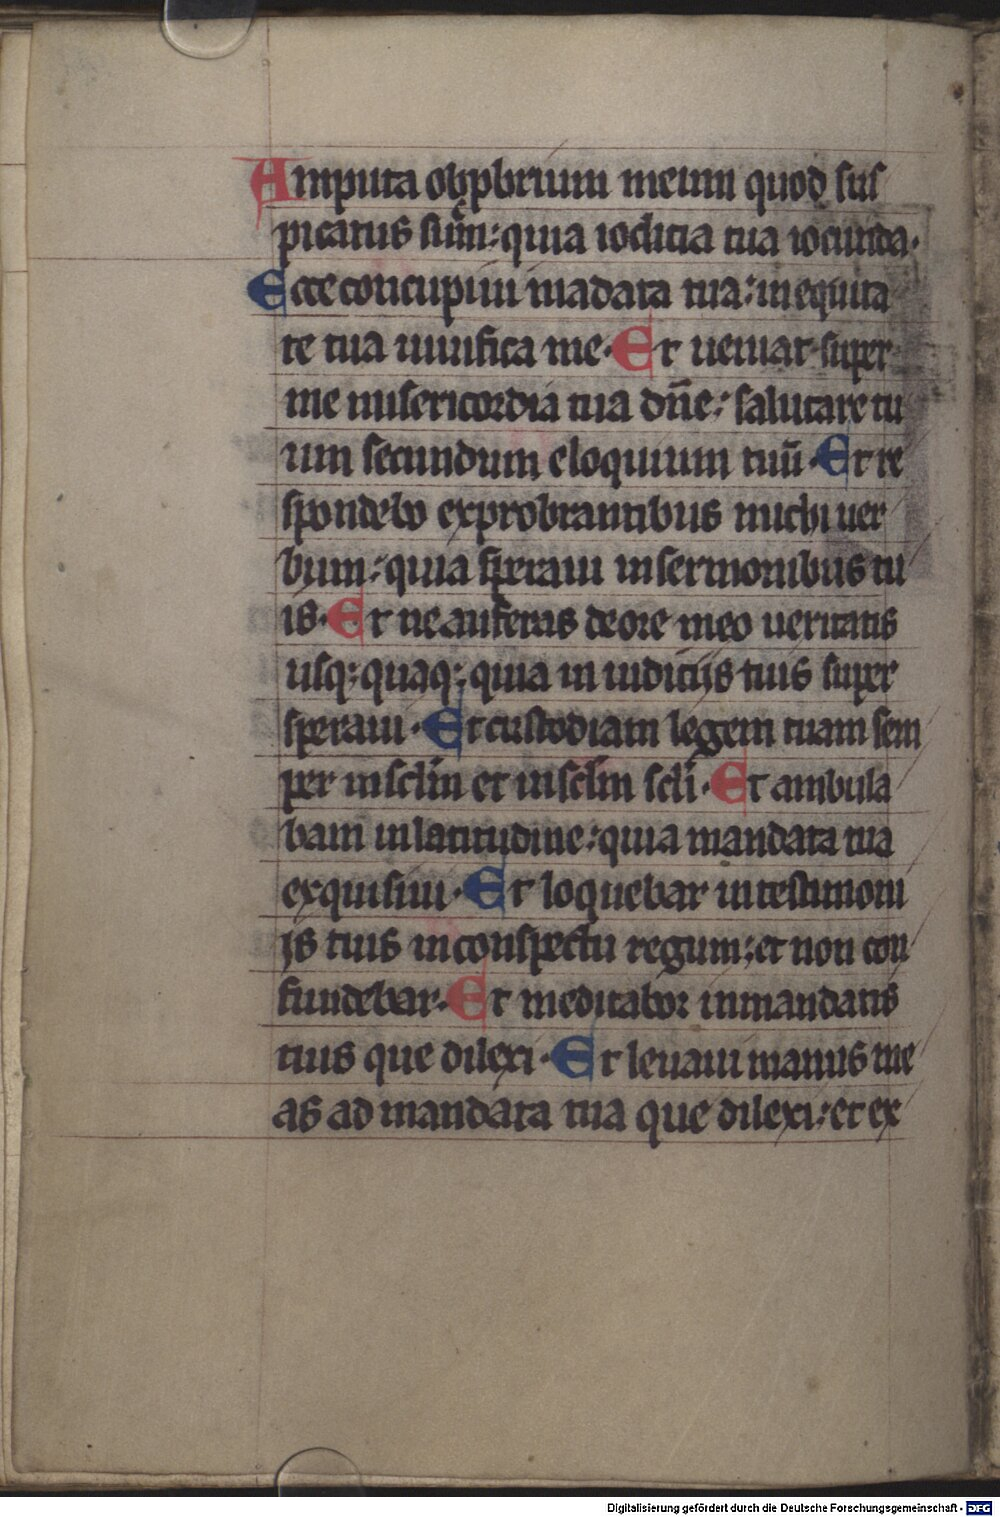 Amputa obpbrium meum quod sus
picatus sum: quia iocditia tua iocunda.
Ecce concupiui madata tua: in equita
te tua uiuifica me. Et ueniat super
me misericordia tua dn̄e: salutare tu
um secundum eloquium tuū. Et re
spondebo exprobrantibus michi uer
bum: quia speraui in sermonibus tu
is. Et ne auferas de ore meo ueritatis
usq; quaq; quia in iudicijs tuis super
speraui. Et custodiam legem tuam sem
per in sclm̄ et in sclm̄ scli. Et ambula
bam in latitudine: quia mandata tua
exquisiui. Et loquebar in testimoni
js tuis in conspectu regum: et non con
fundebar. Et meditabor in mandatis
tuis que dilexi. Et leuaui manus me
as ad mandata tua que dilexi: et ex
Digitalisierung gefördert durch die Deutsche Forschungsgemeinschaft - DFG